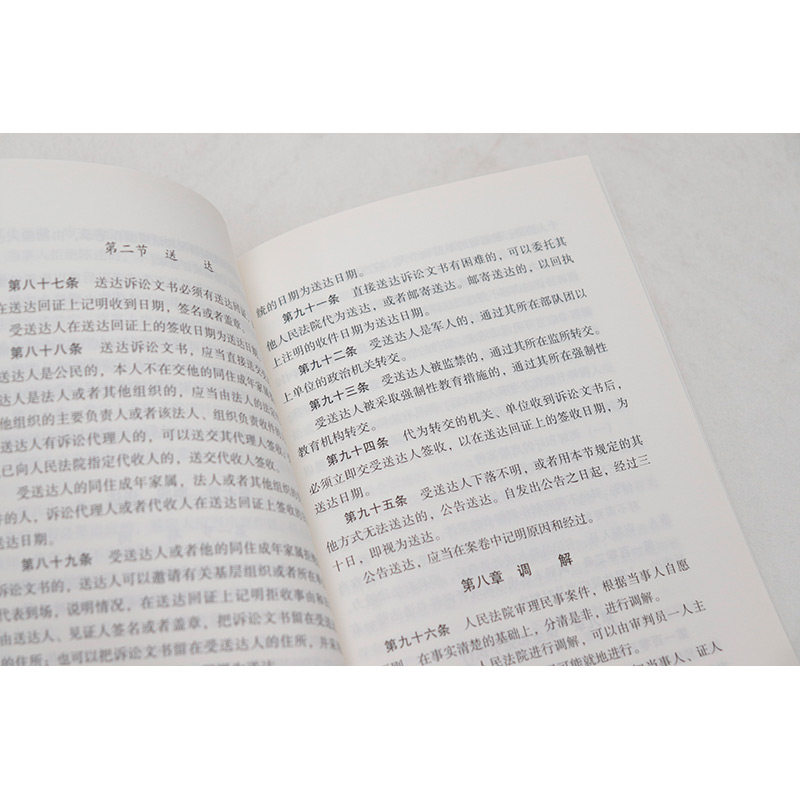 第二节 送 达
第八十七条 送达诉讼文书必须有送达回证
在送达回证上记明收到日期，签名或者盖章。
受送达人在送达回证上的签收日期为送达日期
第八十八条 送达诉讼文书，应当直接送交
送达人是公民的，本人不在交他的同住成年家属
达人是法人或者其他组织的，应当由法人的法
他组织的主要负责人或者该法人、组织负责收件
送达人有诉讼代理人的，可以送交其代理人签收
已向人民法院指定代收人的，送交代收人签收。
受送达人的同住成年家属，法人或者其他组织
的人，诉讼代理人或者代收人在送达回证上签收
送达日期。
第八十九条 受送达人或者他的同住成年家属拒
诉讼文书的，送达人可以邀请有关基层组织或者所在
代表到场，说明情况，在送达回证上记明拒收事由和
由送达人、见证人签名或者盖章，把诉讼文书留在受
的住所；也可以把诉讼文书留在受送达人的住所，并采
统的日期为送达日期。
第九十一条 直接送达诉讼文书有困难的，可以委托其
他人民法院代为送达，或者邮寄送达。邮寄送达的，以回执
上注明的收件日期为送达日期。
第九十二条 受送达人是军人的，通过其所在部队团以
上单位的政治机关转交。
第九十三条 受送达人被监禁的，通过其所在监所转交。
受送达人被采取强制性教育措施的，通过其所在强制性
教育机构转交。
第九十四条 代为转交的机关、单位收到诉讼文书后，
必须立即交受送达人签收，以在送达回证上的签收日期，为
送达日期。
第九十五条 受送达人下落不明，或者用本节规定的其
他方式无法送达的，公告送达。自发出公告之日起，经过三
十日，即视为送达。
公告送达，应当在案卷中记明原因和经过。
第八章 调 解
第九十六条 人民法院审理民事案件，根据当事人自愿
在事实清楚的基础上，分清是非，进行调解。
人民法院进行调解，可以由审判员一人主
可能就地进行。
当事人、证人